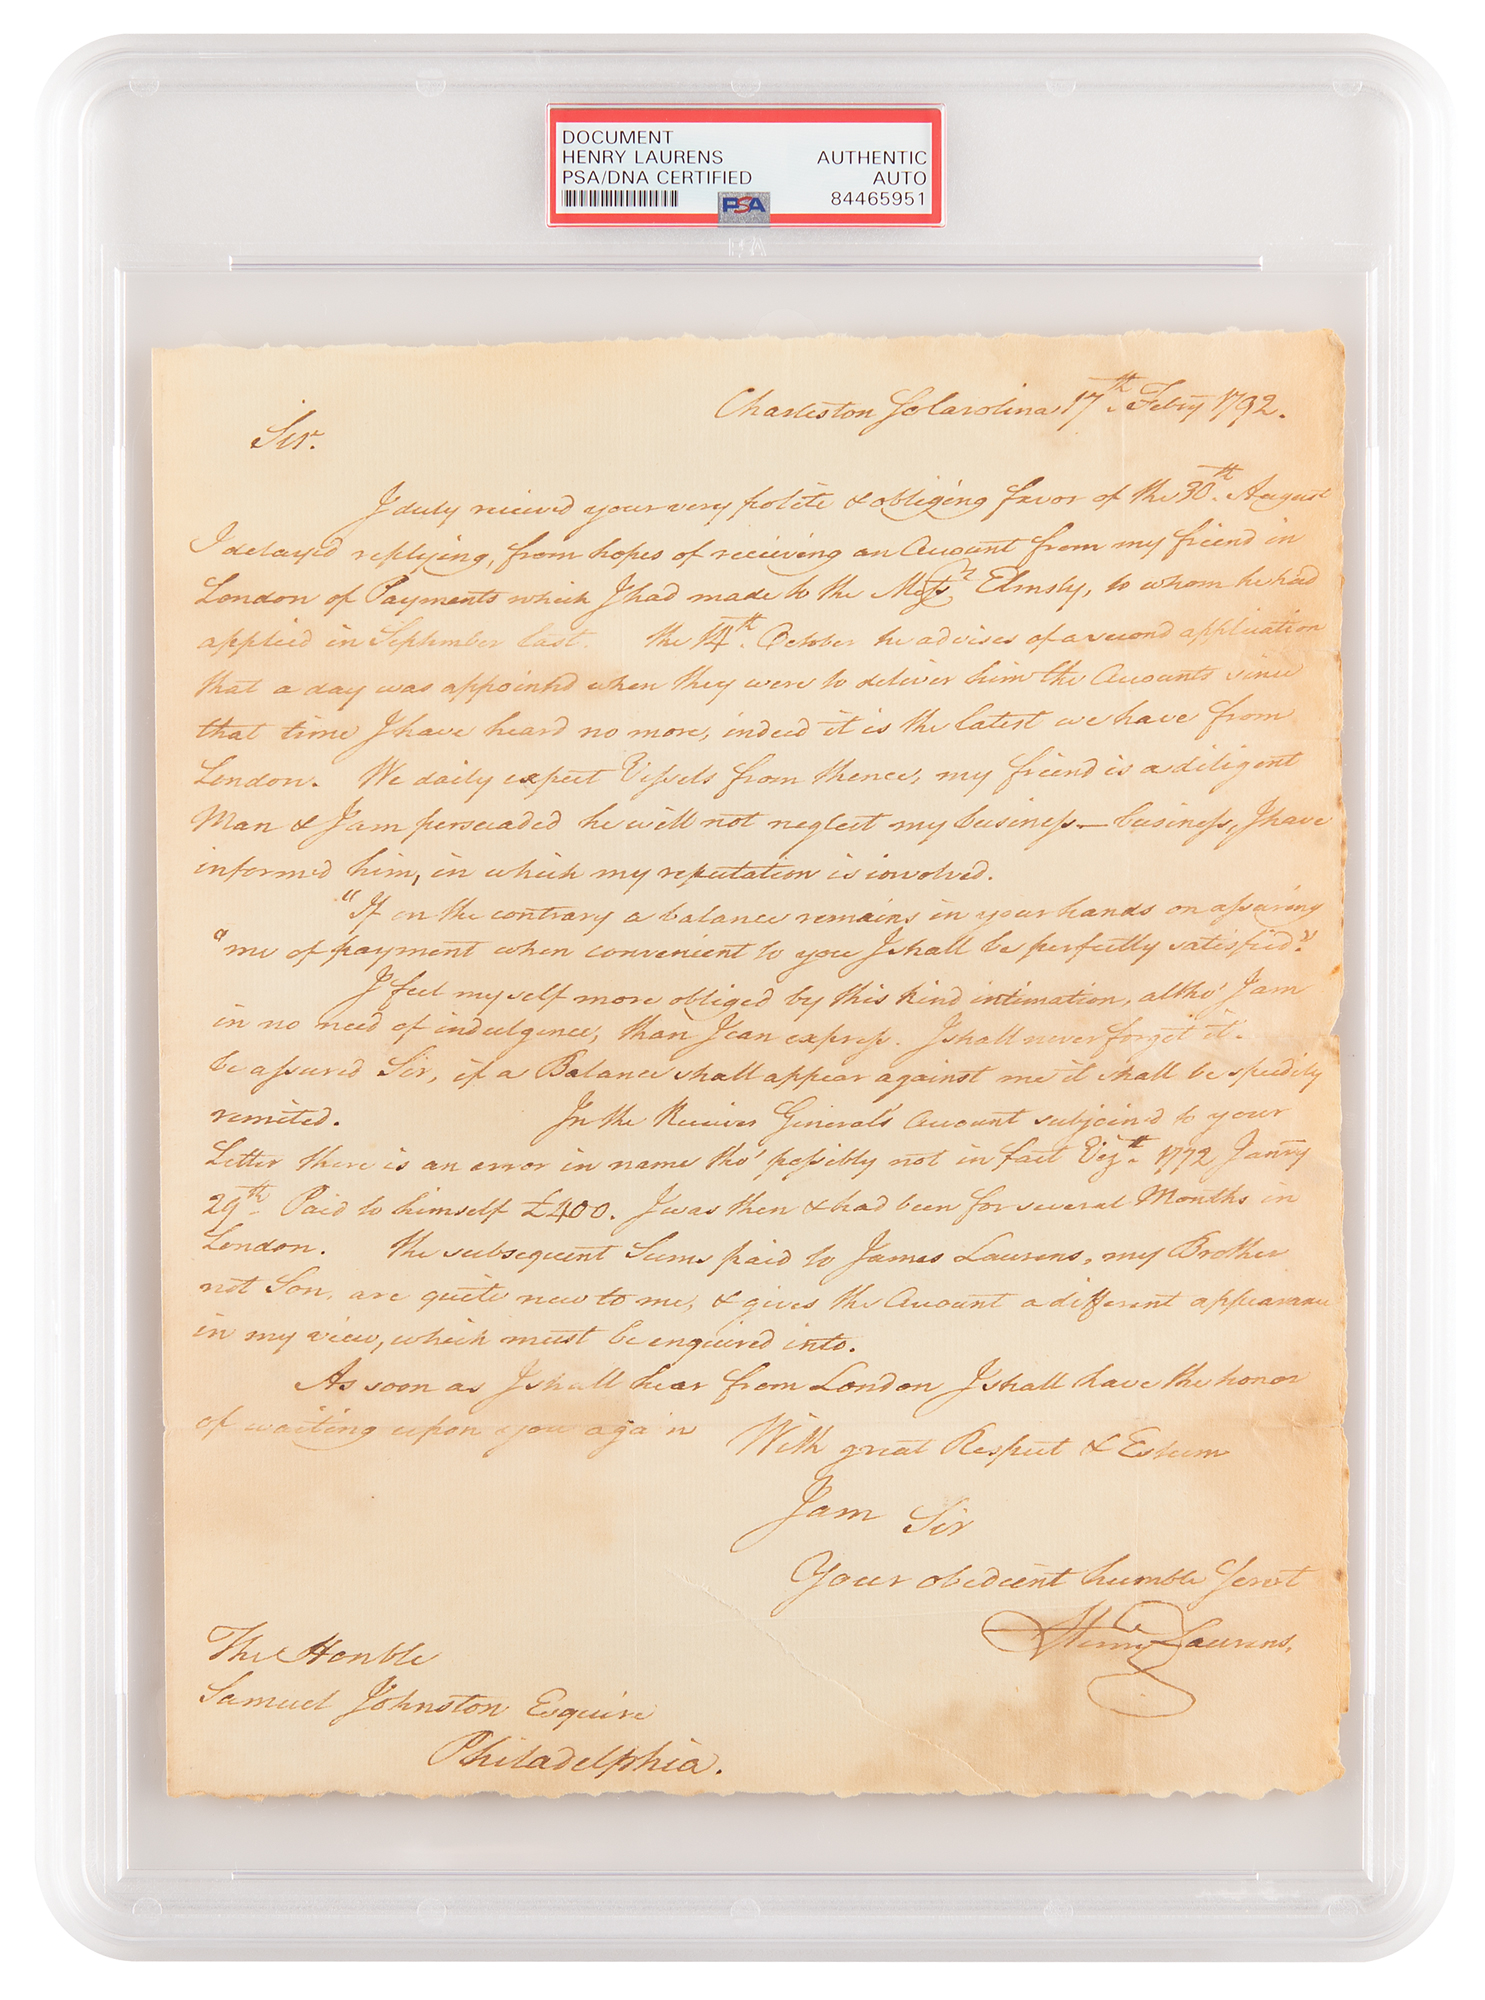 DOCUMENT
HENRY LAURENS
PSA/DNA CERTIFIED
AUTHENTIC
AUTO
84465951
PSA
Charleston So Carolina 17th. Febry 1792.
Sir.
I duly recieved your very polite & obliging favor of the 30th. August
I delayed replying, from hopes of recieving an Account from my friend in
London of Payments which I had made to the Messrs. Elmsly, to whom he had
applied in September last. the 14th. October he advises of a second application
that a day was appointed when they were to deliver him the Accounts since
that time I have heard no more, indeed it is the latest we have from
London. We daily expect Vessels from thence, my friend is a diligent
Man & I am persuaded he will not neglect my business — business, I have
informed him, in which my reputation is involved.
"If on the contrary a balance remains in your hands on assuring
"me of payment when convenient to you I shall be perfectly satisfied."
I feel myself more obliged by this kind intimation, altho' I am
in no need of indulgence, than I can express. I shall never forget it.
be assured Sir, if a Balance shall appear against me it shall be speedily
remited. In the Receiver General's Account subjoin'd to your
Letter there is an error in name tho' possibly not in fact Vizt. 1772 Janry
29th. Paid to himself £400. I was then & had been for several Months in
London. the subsequent Sums paid to James Laurens, my Brother
not Son, are quite new to me, & gives the Account a different appearance
in my view, which must be enquired into.
As soon as I shall hear from London I shall have the honor
of waiting upon you again
With great Respect & Esteem
I am Sir
Your obedient humble Servt
Henry Laurens.
The Honble
Samuel Johnston Esquire
Philadelphia.